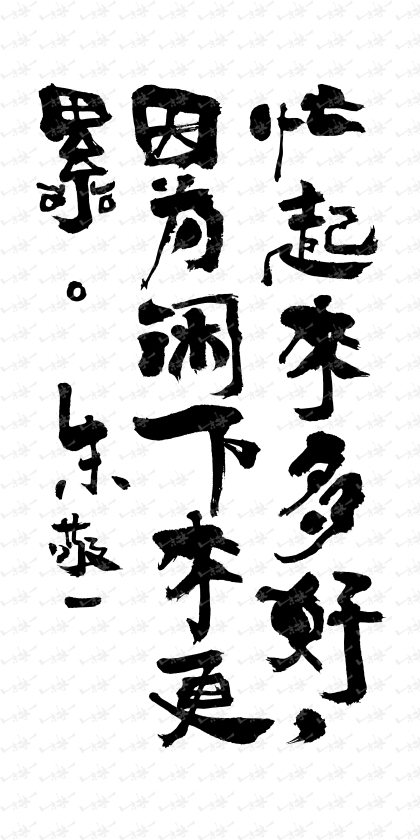 忙起来多好，
因为闲下来更
累。朱敬一